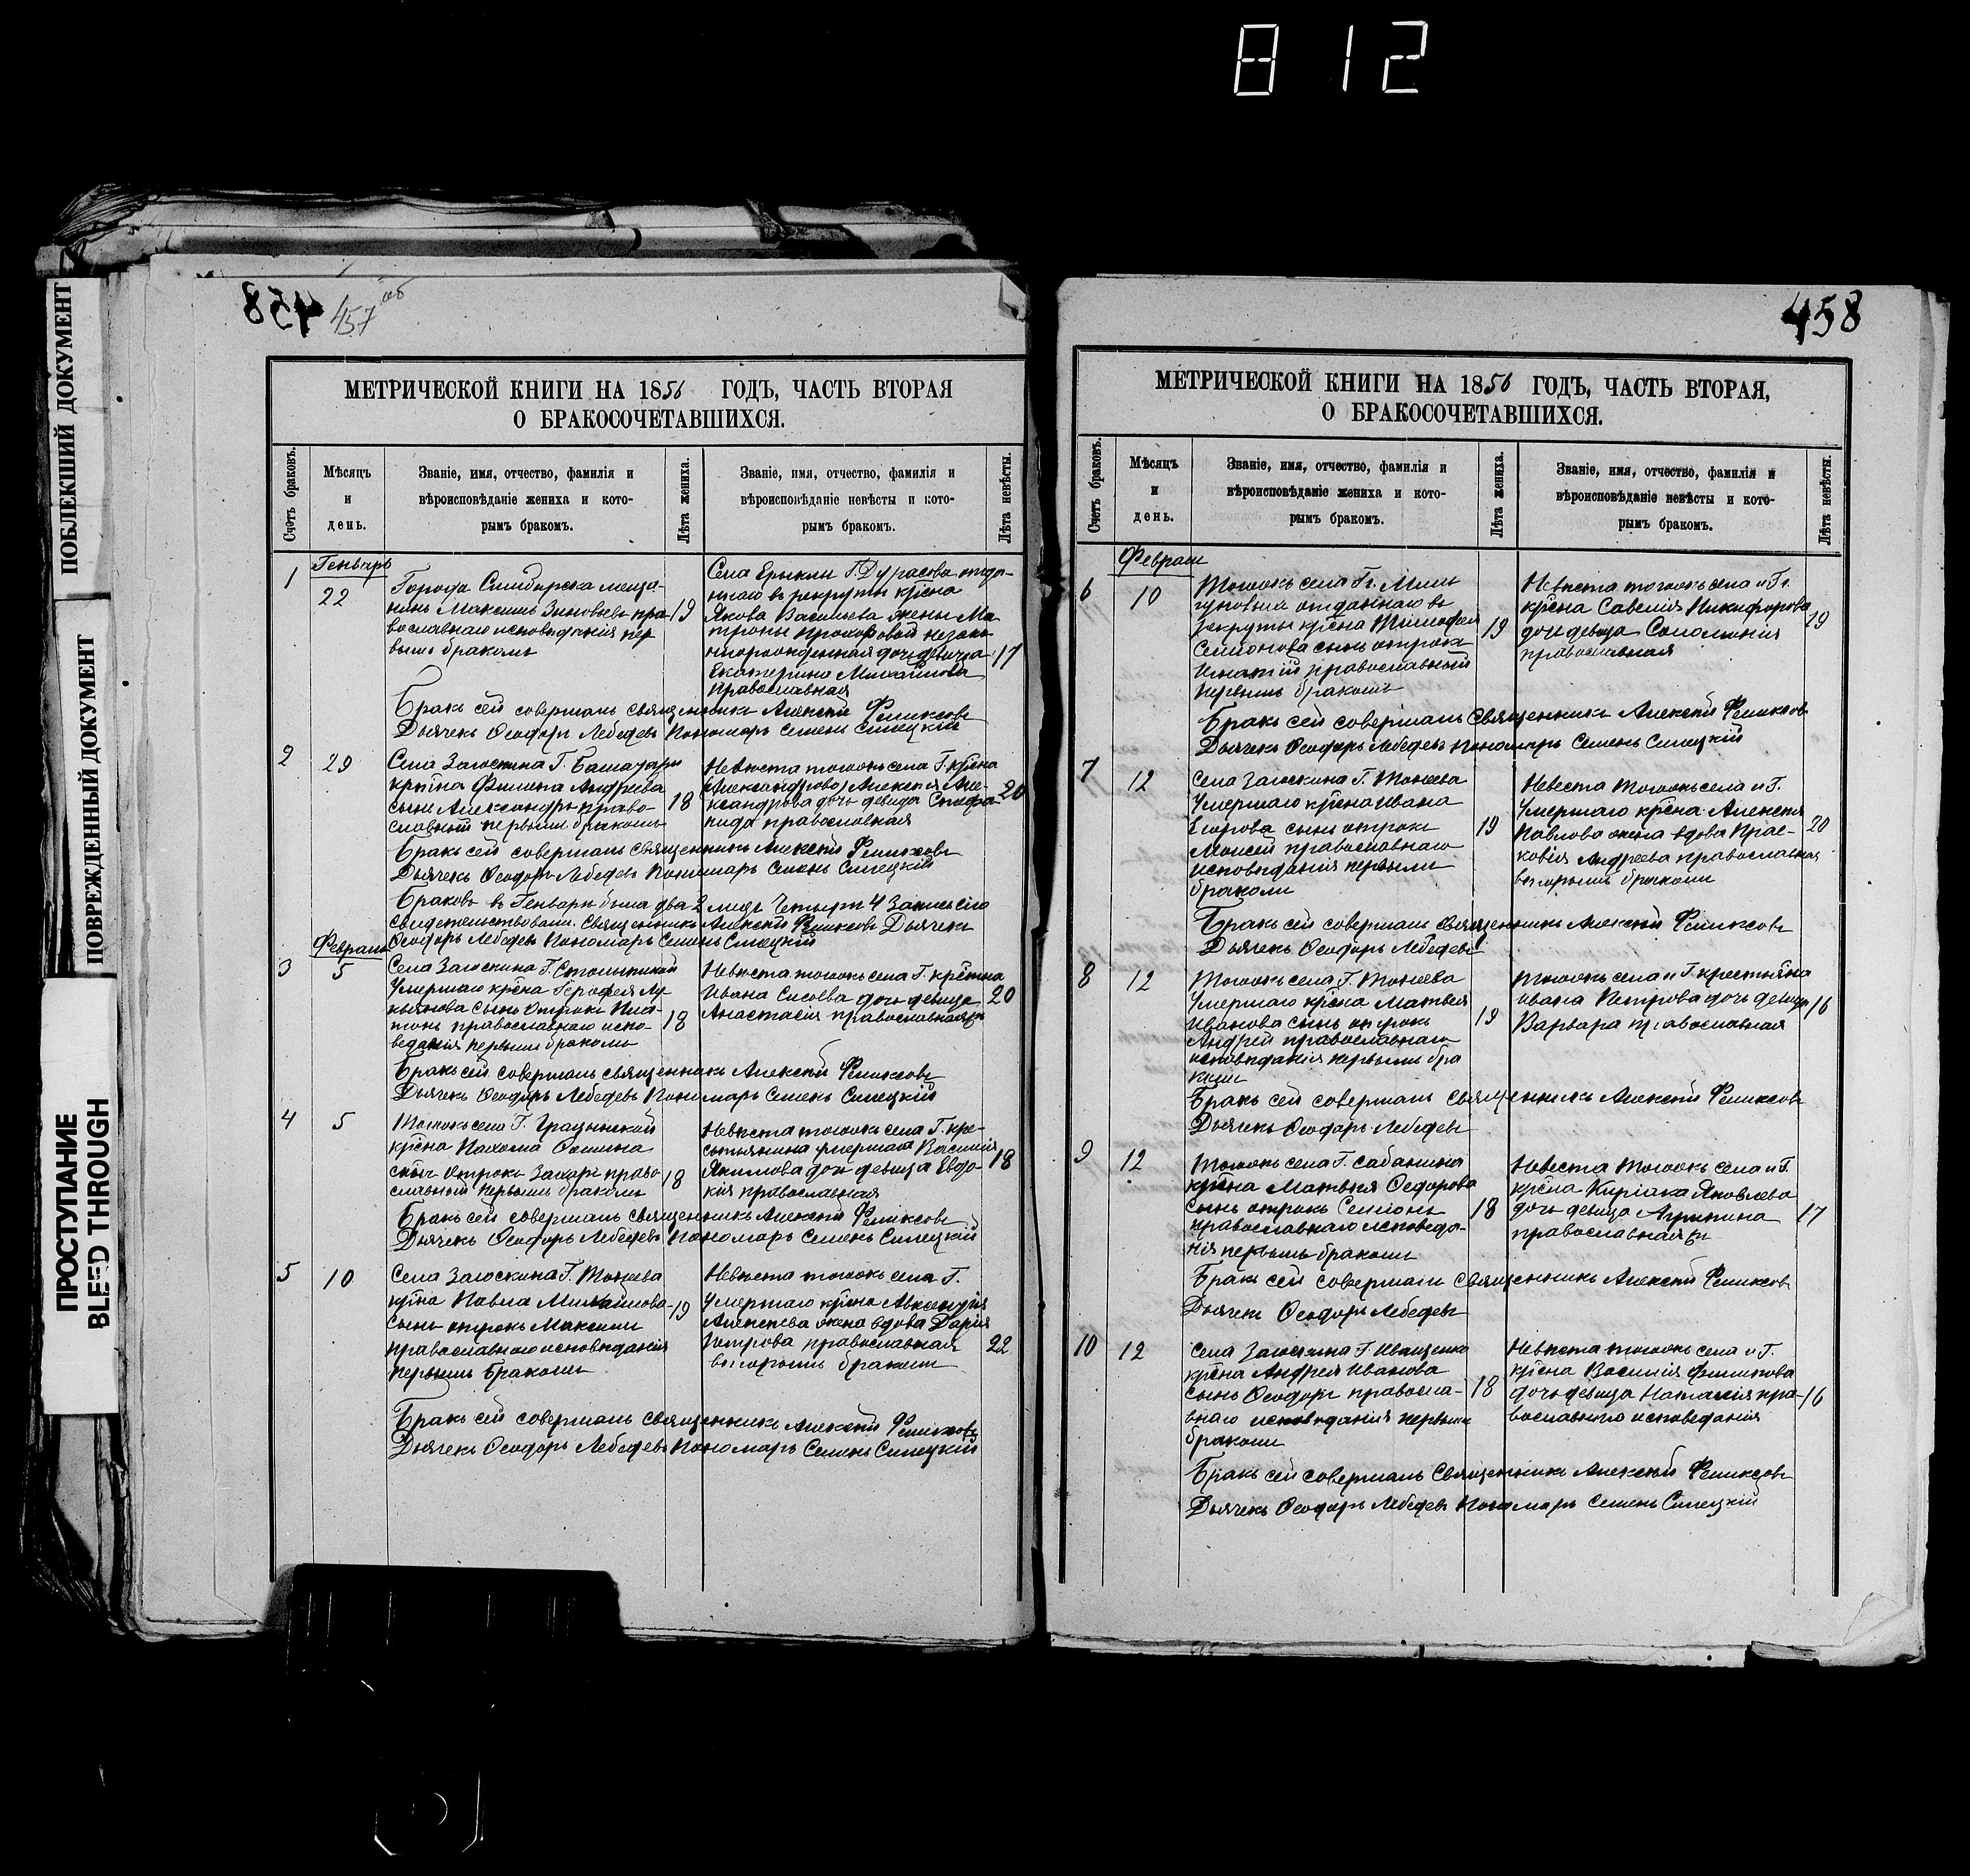 812
ПОБЛЕКШИЙ ДОКУМЕНТ
ПОВРЕЖДЕННЫЙ ДОКУМЕНТ
ПРОСТУПАНИЕ
BLEED THROUGH
458
457 об
МЕТРИЧЕСКОЙ КНИГИ НА 1856 ГОДЪ, ЧАСТЬ ВТОРАЯ
О БРАКОСОЧЕТАВШИХСЯ.
Счетъ браковъ.
Мѣсяцъ
и
день.
Званіе, имя, отчество, фамилія и
вѣроисповѣданіе жениха и кото-
рымъ бракомъ.
Лѣта жениха.
Званіе, имя, отчество, фамилія и
вѣроисповѣданіе невѣсты и кото-
рымъ бракомъ.
Лѣта невѣсты.
Генварь
1
22
Города Симбирска меща-
нинъ Максимъ Зиновьевъ пра-
вославнаго исповѣданія пер
вымъ бракомъ
19
Села Ерыклы Г. Дурасова отда-
ннаго в рекруты крѣна
Якова Васильева жены Ма
троны Прохоровой незакон
норожденная дочь девица
Екатерина Михайлова
православная
17
Бракъ сей совершалъ священникъ Алексѣй Феликсовъ
Дьячекъ Ѳеодоръ Лебедевъ Пономарь Семенъ Силецкій
2
29
Села Загоскина Г.
крѣна Филипа Андреева
сынъ Александръ право-
славный первымъ бракомъ
18
Невѣста тогожъ села Г. крѣна
Алексѣя Але-
ксандрова дочь девица Степа-
нида православная
20
Бракъ сей совершалъ священникъ Алексѣй Феликсовъ
Дьячекъ Ѳеодоръ Лебедевъ Пономарь Семенъ Силецкій
Браковъ въ Генварѣ было два 2 лицъ Четыре 4
свидетельствовали. Священникъ Алексѣй Феликсовъ Дьячекъ
Ѳеодоръ Лебедевъ Пономарь Семенъ Силецкій
Февраль
3
5
Села Загоскина Г. Столыпиной
Умершаго крѣна Ерофея Лу
кьянова сынъ отрокъ Пла-
тонъ православнаго испо-
веданія первымъ бракомъ
18
Невѣста тогожъ села Г. крѣстна
Ивана Сысоева дочь девица
Анастасія православная
20
Бракъ сей совершалъ священникъ Алексѣй Феликсовъ
Дьячекъ Ѳеодоръ Лебедевъ Пономарь Семенъ Силецкій
4
5
Тогожъ села Г.
крѣна Пахома
сынъ отрокъ Захаръ право
славный первымъ бракомъ
18
Невѣста тогожъ села Г. кре-
стьянина умершаго Василія
Якимова дочь девица Евдо-
кія православная
18
Бракъ сей совершалъ священникъ Алексѣй Феликсовъ
Дьячекъ Ѳеодоръ Лебедевъ Пономарь Семенъ Силецкій
5
10
Села Загоскина Г. Топѣева
крѣна Павла Михайлова
сынъ отрокъ Максимъ
православнаго исповѣданія
первымъ бракомъ
19
Невѣста тогожъ села Г.
Умершаго крѣна Авксентія
Алексѣева жена вдова Дарья
Петрова православная
вторымъ бракомъ
22
Бракъ сей совершалъ священникъ Алексѣй Феликсовъ
Дьячекъ Ѳеодоръ Лебедевъ Пономарь Семенъ Силецкій
458
МЕТРИЧЕСКОЙ КНИГИ НА 1856 ГОДЪ, ЧАСТЬ ВТОРАЯ,
О БРАКОСОЧЕТАВШИХСЯ.
Счетъ браковъ.
Мѣсяцъ
и
день.
Званіе, имя, отчество, фамилія и
вѣроисповѣданіе жениха и кото-
рымъ бракомъ.
Лѣта жениха.
Званіе, имя, отчество, фамилія и
вѣроисповѣданіе невѣсты и кото-
рымъ бракомъ.
Лѣта невѣсты.
Февраль
6
10
Тогожъ села Гг.
отданнаго въ
рекруты крѣна Тимофея
Семионова сынъ отрокъ
Игнатій православный
первымъ бракомъ
19
Невѣста тогожъ села и Гг.
крѣна Савелія Никифорова
дочь девица Соломинія
православная
19
Бракъ сей совершалъ Священникъ Алексѣй Феликсовъ
Дьячекъ Ѳеодоръ Лебедевъ пономарь Семенъ Силецкій
7
12
Села Загоскина Г. Топѣева
Умершаго крѣна Ивана
Егорова сынъ отрокъ
Моисей православнаго
исповѣданія первымъ
бракомъ
19
Невеста тогожъ села и Г.
Умершаго крѣна Алексѣя
Павлова жена вдова Прас-
ковія Андреева православная
вторымъ бракомъ
20
Бракъ сей совершалъ священникъ Алексѣй Феликсовъ
Дьячекъ Ѳеодоръ Лебедевъ
8
12
Тогожъ села Г. Топѣева
Умершаго крѣна Матвея
Иванова сынъ отрокъ
Андрей православнаго
исповѣданія первымъ бра
комъ
19
Тогожъ села и Г. крестьяна
Ивана Петрова дочь девица
Варвара православная
16
Бракъ сей совершалъ священникъ Алексѣй Феликсовъ
Дьячекъ Ѳеодоръ Лебедевъ
9
12
Тогожъ села Г. Сабанина
крѣна Матвѣя Ѳедорова
сынъ отрокъ Семіонъ
православнаго исповеда-
нія первымъ бракомъ
18
Невеста тогожъ села и Г.
крѣна Киріака Яковлева
дочь девица Агрипина
православная
17
Бракъ сей совершалъ Священникъ Алексѣй Феликсовъ
Дьячекъ Ѳеодоръ Лебедевъ
10
12
Села Загоскина Г. Иващенко
крѣна Андрея Иванова
сынъ Ѳеодоръ правосла-
внаго исповѣданія первымъ
бракомъ
18
Невѣста тогожъ села и Г.
крѣна Василія Филипова
дочь девица Наталія пра-
вославнаго исповеданія
16
Бракъ сей совершалъ Священникъ Алексѣй Феликсовъ
Дьячекъ Ѳеодоръ Лебедевъ Пономарь Семенъ Силецкій